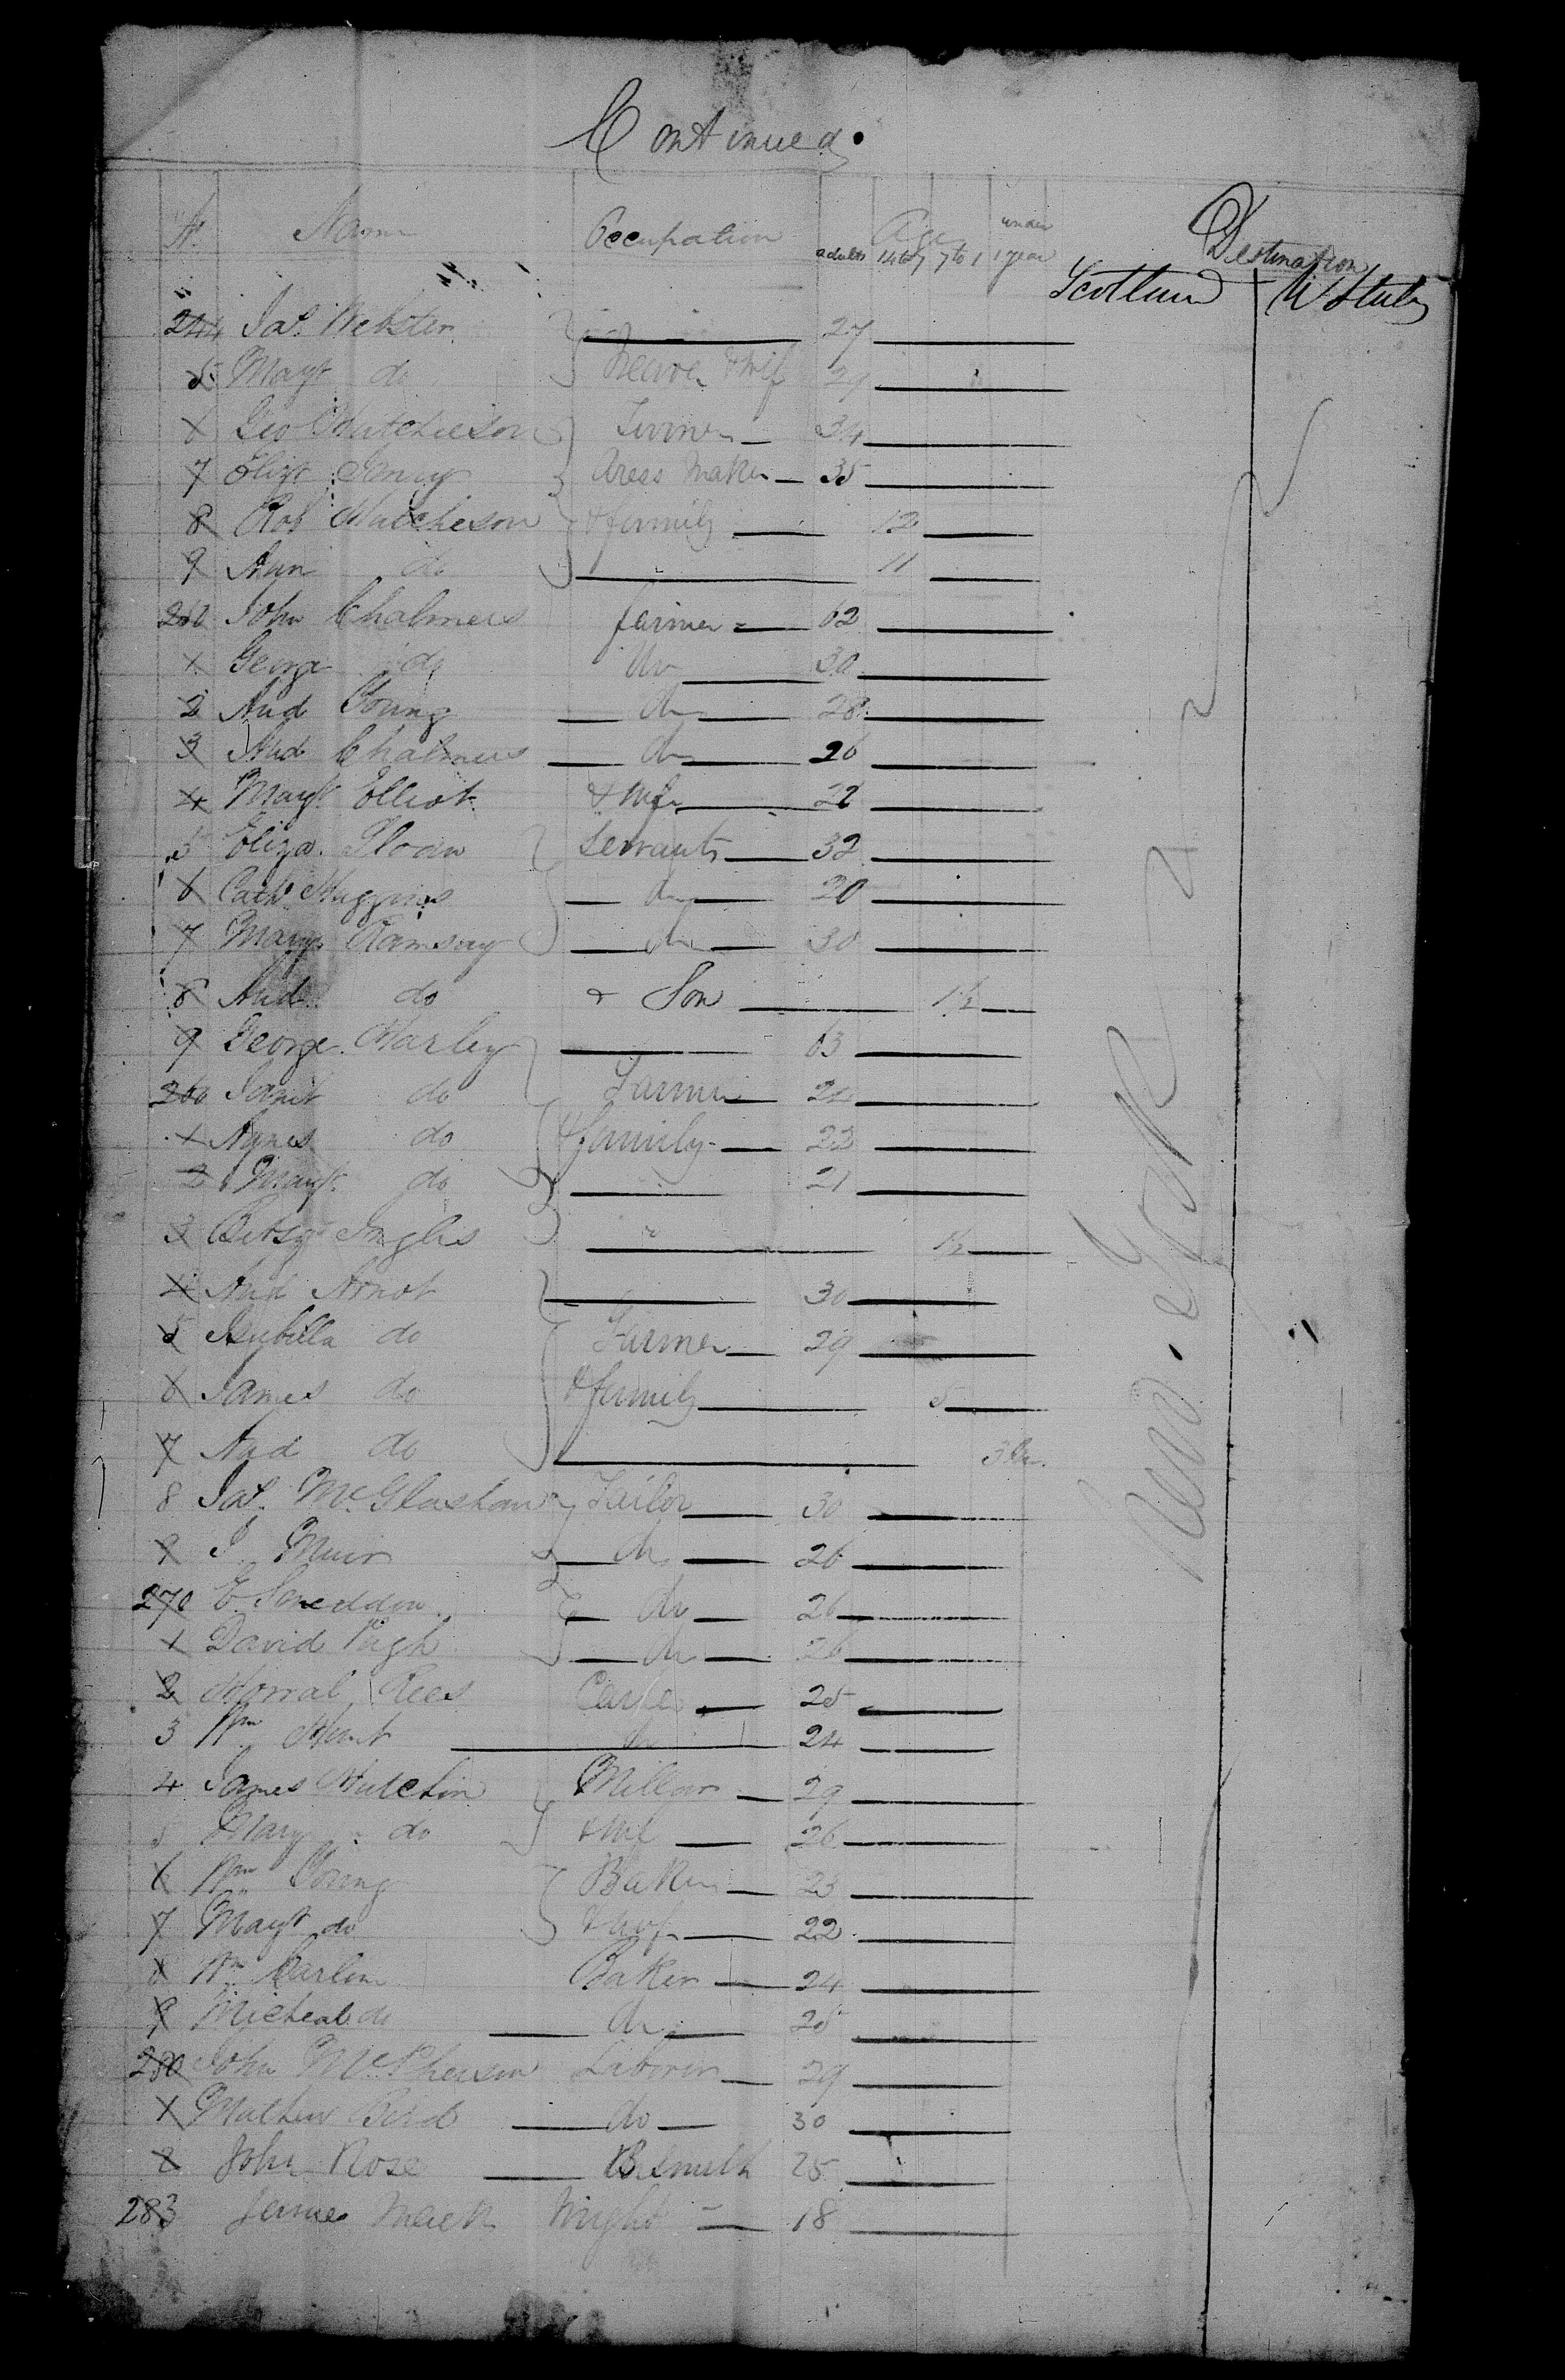 Continued
No. Name Occupation Age under
adults 14 to 7 7 to 1 1 year Destination
Scotland U States
244 Jas. Webster 27
5 Margt do & wife 29
6 Geo Hutcheson Farmer 34
7 Elizt Dress Maker 35
8 Rob Hutcheson & family 12
9 Ann do 11
250 John Chalmers farmer 62
1 George do do 30
2 And Young do 28
3 And Chalmers do 26
4 Margt Elliot & wife 22
5 Eliza. Sloan Servants 32
6 Cath Huggins do 20
7 Margt Ramsay do 30
8 And do & Son 1½
9 George Harley 63
260 Janet do Farmer 24
1 Agnes do & family 22
2 Margt do 21
3 Betsy Inglis 1½
4 And Arnot 30
5 Isabella do Farmer 29
6 James do & family 5
7 And do 3 m.
8 Jas. McGlashan Tailor 30
9 J Muir do 26
270 E Sneddon do 26
1 David Pugh do 26
2 Morral Rees Carpr 25
3 Wm Hunt do 24
4 James Hutchin Millar 29
5 Mary do & wif 26
6 Wm Young Baker 23
7 Margt do & wife 22
8 Wm Carlin Baker 24
9 Micheal do do 25
280 John McPherson Laborer 29
1 Mathew Bird do 30
2 John Rose B. Smith 25
283 James Mack Wright 18
New York